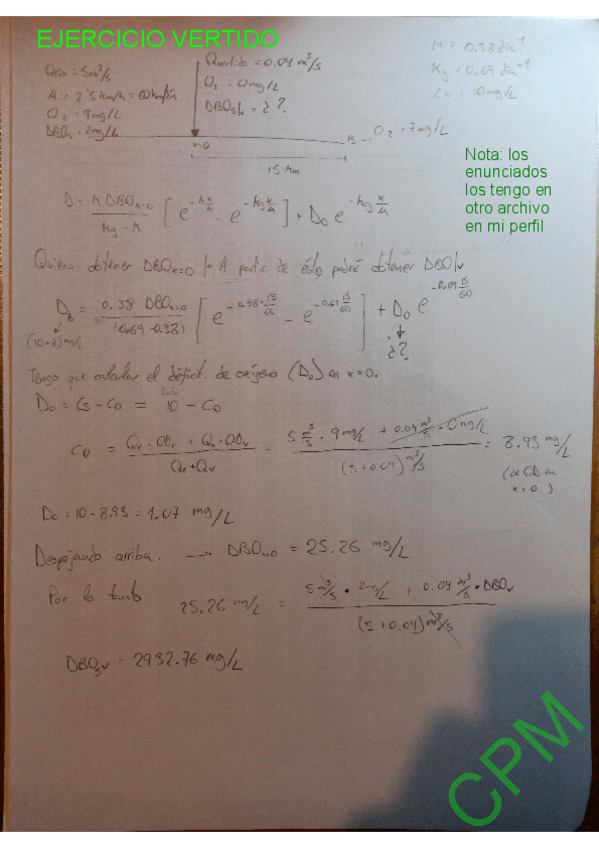 EJERCICIO VERTIDO
Qrío = 5m³/s
M = 2'5 km/h = 60km/día
O₂ = 9mg/L
DBO₅ = 2mg/L
Qvertido = 0.04 m³/s
O₂ - 0mg/L
DBO₅/v = ¿?
K = 0.38 día⁻¹
Kg = 0.69 día⁻¹
Cs = 10mg/L
x=0
B - O₂ = 7mg/L
15 Km
Nota: los
enunciados
los tengo en
otro archivo
en mi perfil
D = K DBOx=0 / Kg - K [ e^-K x/u - e^-Kg x/u ] + D₀ e^-Kg x/u
Quiero obtener DBOx=0 A partir de éste podré obtener DBO|v
D_B = 0.38 DBOx=0 / (0.69-0.38) [ e^-0.38·15/60 - e^-0.69·15/60 ] + D₀ e^-0.69 15/60
(10-7)mg/L
¿?
Tengo que calcular el déficit de oxígeno (D₀) en x=0.
D₀ = Cs - C₀ = 10 - C₀
C₀ = Qr · ODr + Qv · ODv / Qr+Qv = 5 m³/s · 9 mg/L + 0.04 m³/s · 0 mg/L / (5 + 0.04) m³/s = 8.93 mg/L
(de OD en
x=0)
D₀ = 10 - 8.93 = 1.07 mg/L
Despejando arriba. → DBOx=0 = 25.26 mg/L
Por lo tanto
25.26 mg/L = 5 m³/s · 2 mg/L + 0.04 m³/s · DBOv / (5 + 0.04) m³/s
DBO₅v = 2932.76 mg/L
CPM